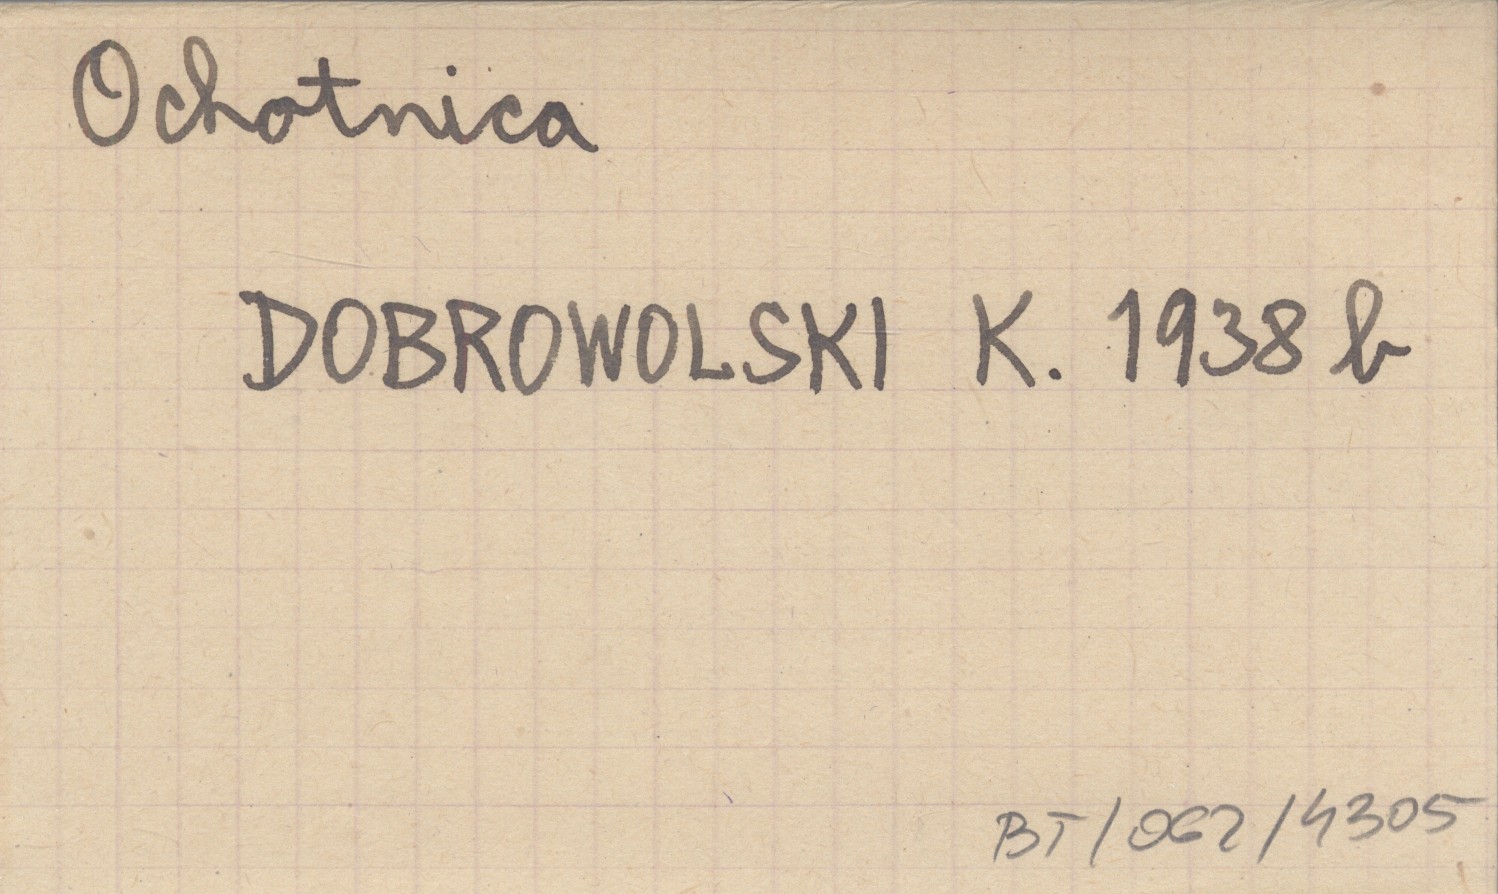 Ochotnica
DOBROWOLSKI K. 1938 b
BT/062/4305